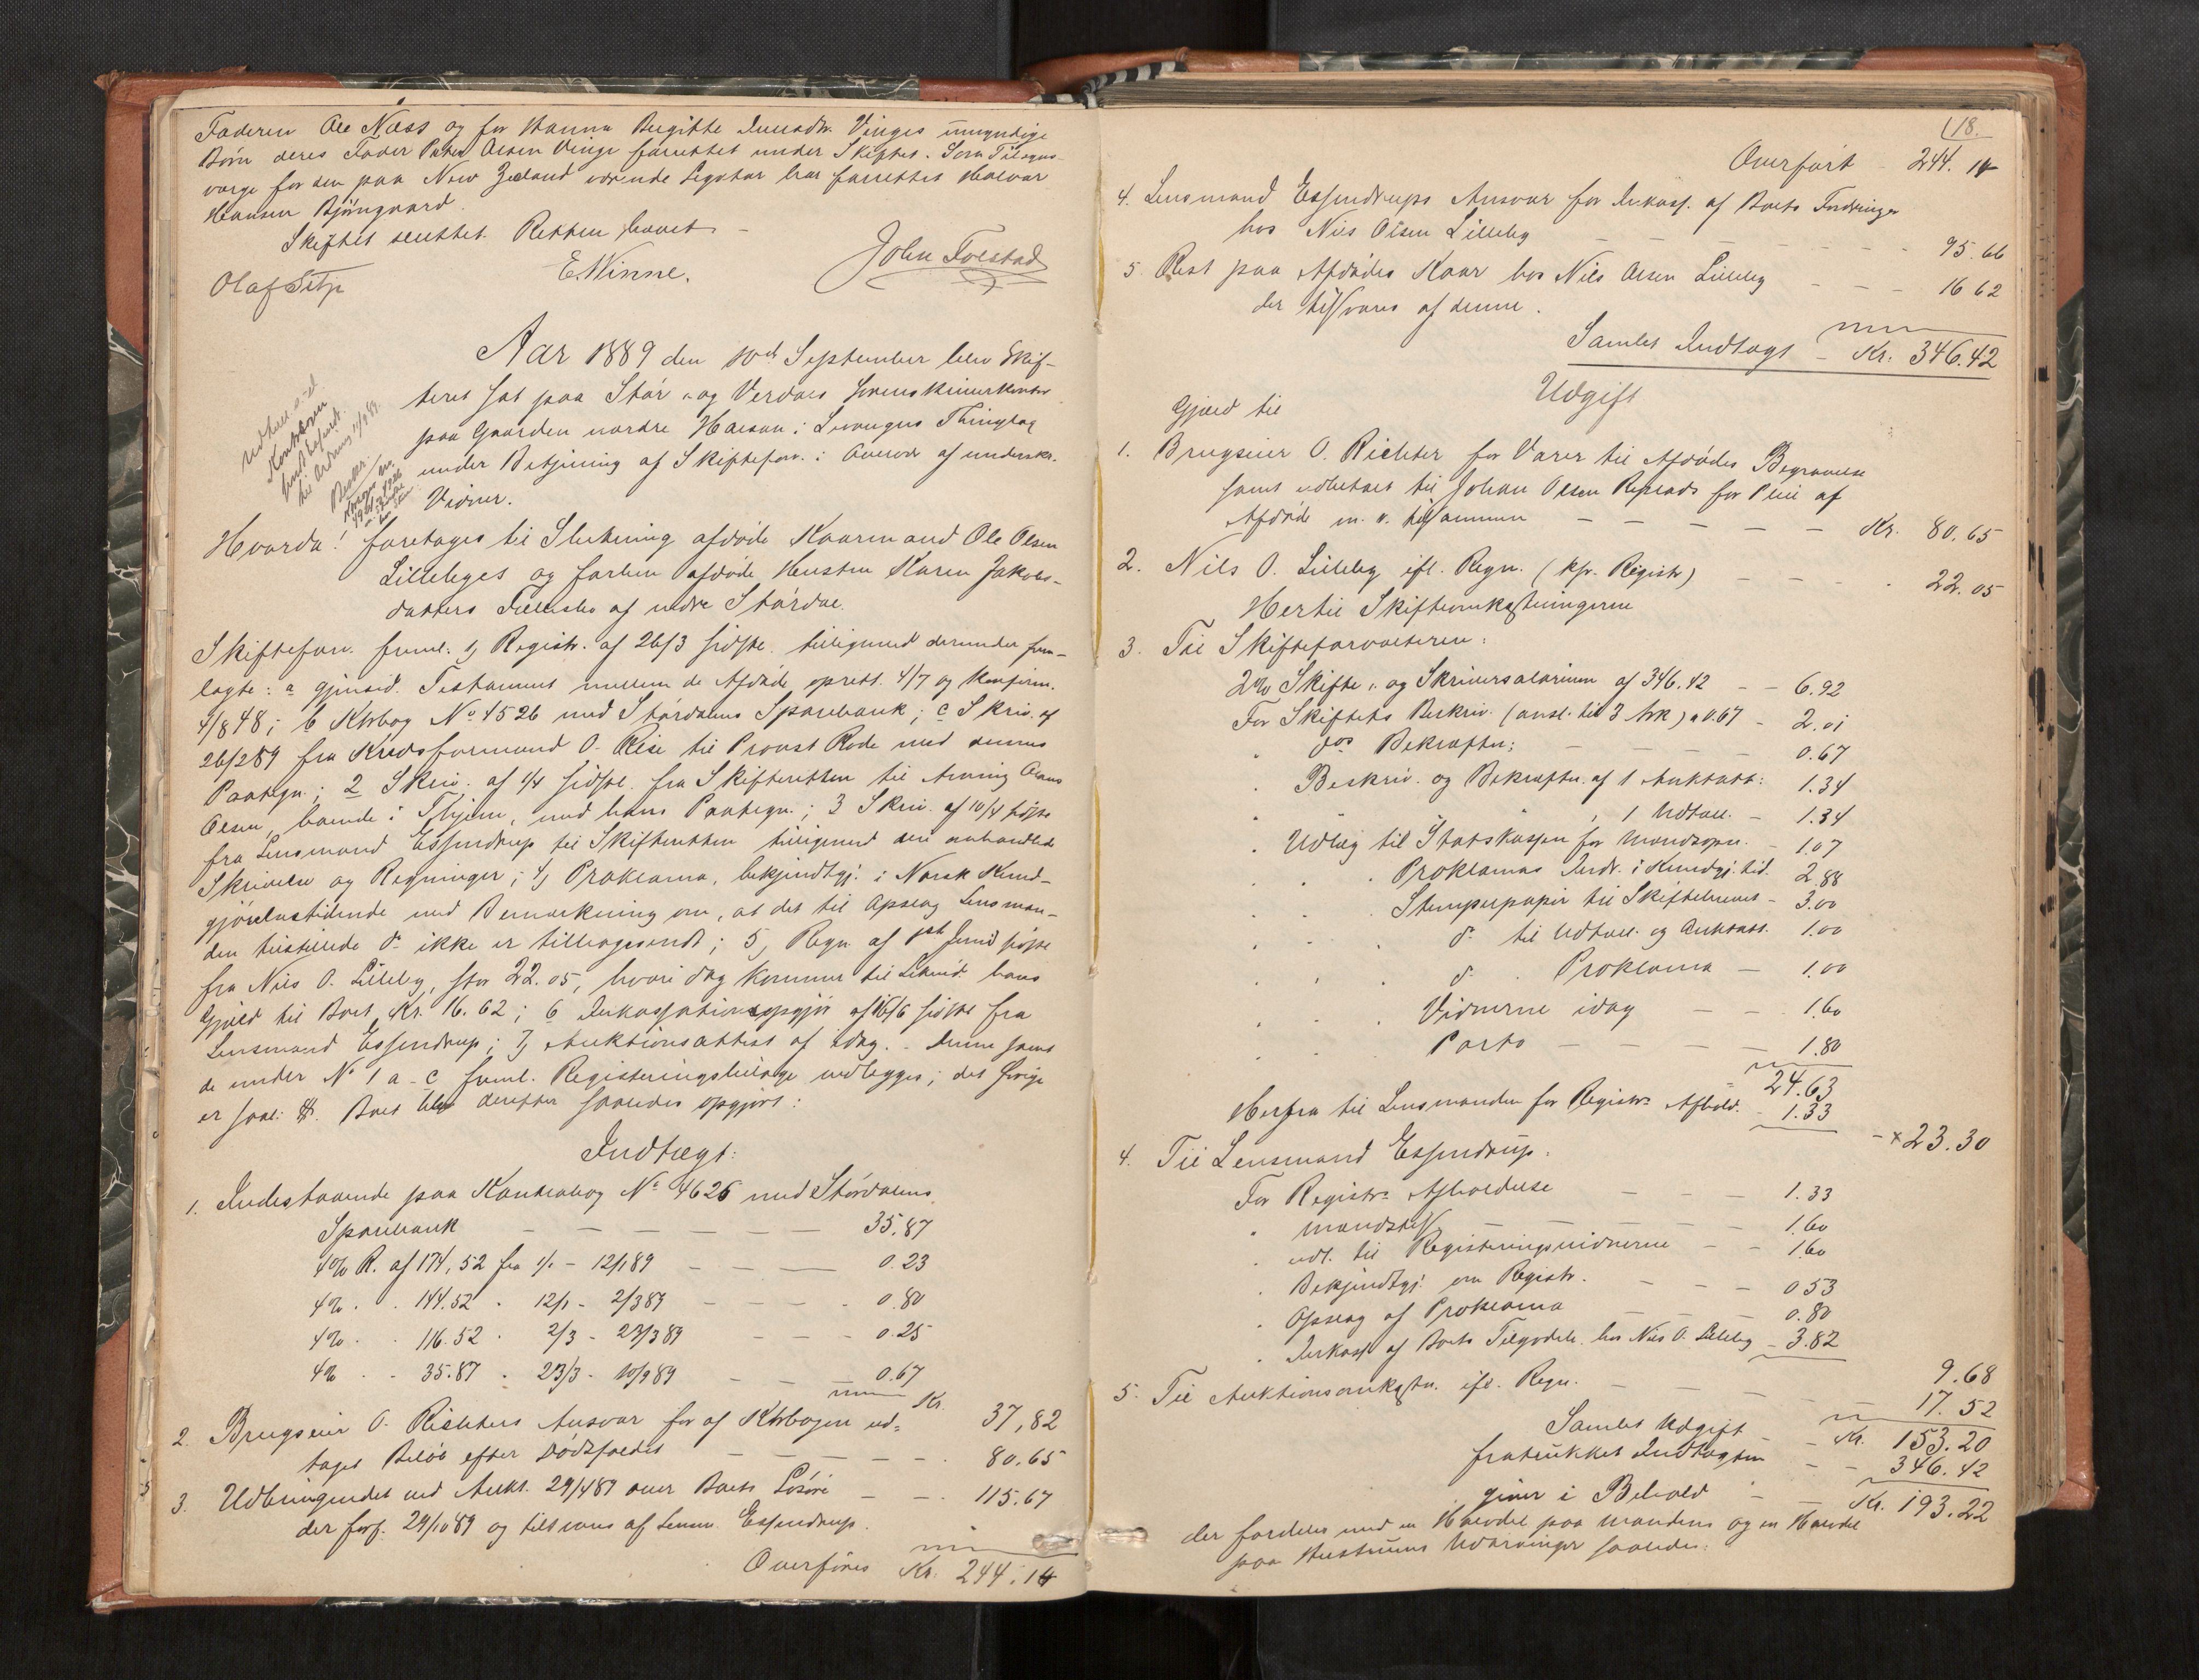 Faderen Ole Næss og for Hanna Birgitte Vinges umyndige
Børn deres Fader Peter Olsen Vinge forrettet under Skiftet. Som Tilsyns-
værge for den paa New Zeland værende Legatar har forrettet Halvor
Hansen Bjøngaard.
Skiftet sluttet. Retten hævet –
Olaf E Winne. John Forstad
Aar 1889 den 10de September blev Skif-
teret sat paa Stør- og Verdals Sorenskriverkontor
paa Gaarden nordre Halsan i Levangers Thinglag
under Betjening af Skifteforv. i Overvær af underskr.
Vidner.
Hvorda! foretoges til Slutning afdøde Kaarmand Ole Olsen
Lillebyes og forhen afdøde Hustru Karen Jakobs-
datters Fællesbo af nedre Størdal.
Skifteforv. freml. 1) Registr. af 26/3 sidstl. tilligemed derunder frem-
lagte: a gjensid. Testament mellem de Afdøde oprett. 4/7 og Konfirm.
4/8 48; b Ktrbog No 4526 med Størdalens Sparebank; c Skriv. af
26/2 89 fra Kredsformand O. Rise til Provst Rode med dennes
Paategn.; 2 Skriv. af 1/4 sidstl. fra Skifteretten til Arving
Olsen, boende i Thjem, med hans Paategn.; 3 Skriv. af 10/4 sidstl.
fra Lensmand Essendrup til Skifteretten tilligemed
Skrivelse og Regninger; 4) Proklama, bekjendtgj. i Norsk Kund-
gjørelsestidende med Bemærkning om, at det til Opslag Lensman-
den tilstillede do ikke er tilbagesendt; 5) Regn. af 1ste Juni sidstl.
fra Nils O. Lilleby, stor 22.05, hvori dog kommer til Likvid. hans
Gjæld til Boet Kr. 16.62; 6 Inkassationsopgjør af 16/6 sidstl. fra
Lensmand Essendrup; 7) Auktionsattest af idag. – Denne samt
de under No 1 a–c freml. Registeringsbilage vedlegges; det øvrige
er saal: Boet blev derefter saaledes opgjort:
Indtægt:
1. Indestaaende paa Kontrabog No 4626 med Størdalens
Sparebank – – – – – – 35.87
4% R. af 174,52 fra 1/1 – 12/1 89 – – – 0.23
4% . . 144.52 . 12/1 – 2/3 89 – – – 0.80
4% . . 116.52 . 2/3 – 23/3 89 – – – 0.25
4% . . 35.87 . 23/3 – 10/9 89 – – – 0.67
Kr. 37,82
2. Brugseier O. Richters Ansvar for af Ktrbogen ud-
taget Beløb efter Dødsfaldet – – – – – 80.65
3. Udbringendet ved Aukt. 29/4 89 over Boets Løsøre – – 115.67
der forf. 29/10 89 og tilsvares af Lensm. Essendrup.
Overføres Kr. 244.14
18.
Overført – 244.14
4. Lensmand Essendrups Ansvar for Inkass. af Boets Fordringer
hos Nils Olsen Lilleby – – – – – – – 95.66
5. Rest paa Afdødes Kaar hos Nils Olsen Lilleby – – – 16 62
der tilsvares af denne.
Samlet Indtægt – Kr. 346.42
Udgift
Gjæld til
1. Brugseier O. Richter for Varer til Afdødes Begravelse
samt udbetalt til Johan Olsen for Pleie af
Afdøde m. v. tilsammen – – – – – Kr. 80.65
2. Nils O. Lilleby ifl. Regn. (kfr. Registr) – – – 22.05
Hertil Skifteomkostningerne
3. Til Skifteforvalteren:
2% Skifte- og Skriversalarium af 346.42 – – 6.92
For Skiftets Beskriv. (ansl. til 3 Ark) a 0.67 – 2.01
" dos Bekræftn; – – – – – 0.67
. Beskriv. og Bekræftn. af 1 Auktatt: 1.34
" " , 1 Udtall. – 1.34
. Udlæg til Statskassen for Mandsopn. – 1.07
. . . Proklamas Indr. i Kundgj. tid. 2.88
. . . Stempelpapir til Skiftebrevet – 3.00
. . . do til Udtall. og Auktatt. 1.00
. . . do . Proklama – 1.00
. . . Vidnerne idag – – 1.60
. . . Porto – – – – – 1.80
24.63
Herfra til Lensmanden for Registrs Afhold. – 1.33
– × 23.30
4. Til Lensmand Essendrup:
For Registrs Afholdelse – – – 1.33
. Mandstell – – – – – – 1.60
. udl. til Registeringsvidnerne – – 1.60
. Bekjendtgj. om Registr. – – – 0 53
. Opslag af Proklama – – – 0.80
. Inkass. af Boets Tilgodeh. hos Nils O. Lilleby – 3.82
9.68
5. Til Auktionsomkostn. ifl. Regn. – – – – – 17.52
Samlet Udgift – – Kr. 153.20
fratrukket Indtægten – – 346.42
giver i Behold – – Kr. 193.22
der fordeles med en Halvdel paa Mandens og en Halvdel
paa Hustruens Udarvinger saaledes: